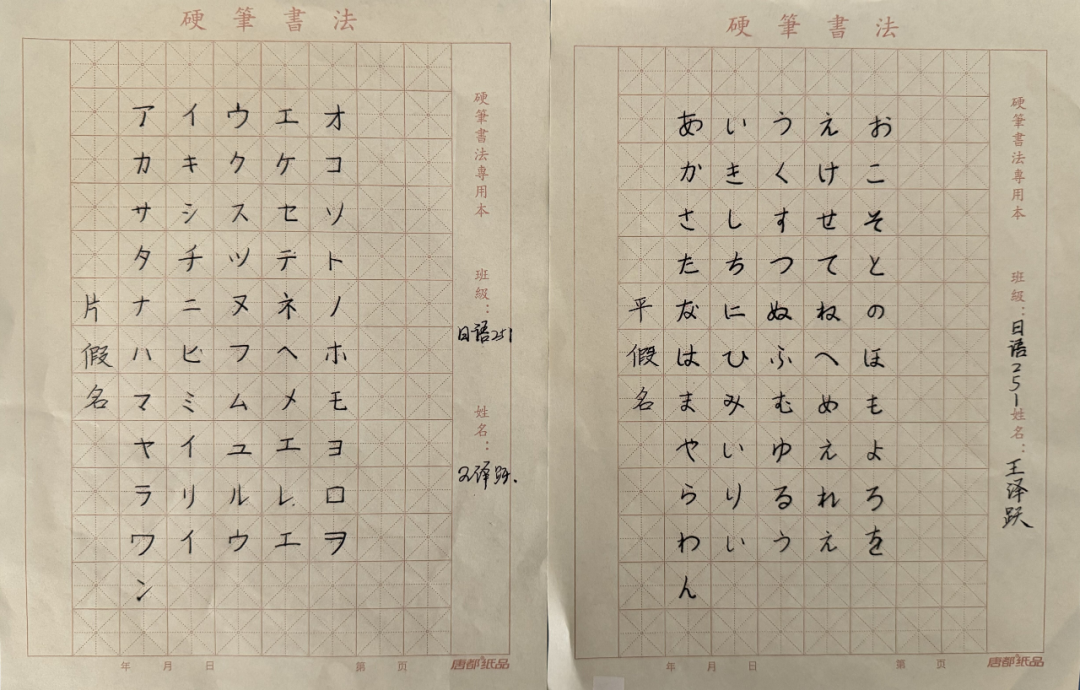 硬筆書法
アイウエオ
カキクケコ
サシスセソ
タチツデト
ナニヌネノ
ハヒフヘホ
マミムメモ
ヤイユエヨ
ラリルレロ
ワイウエヲ
ン
片假名
硬筆書法專用本
班級：日语251
姓名：王泽跃
年 月 日
第 页
唐都纸品
硬筆書法
あいうえお
かきくけこ
さしすせそ
たちつてと
なにぬねの
はひふへほ
まみむめも
やいゆえよ
らりるれろ
わいうえを
ん
平假名
硬筆書法專用本
班級：日语251
姓名：王泽跃
年 月 日
第 页
唐都纸品